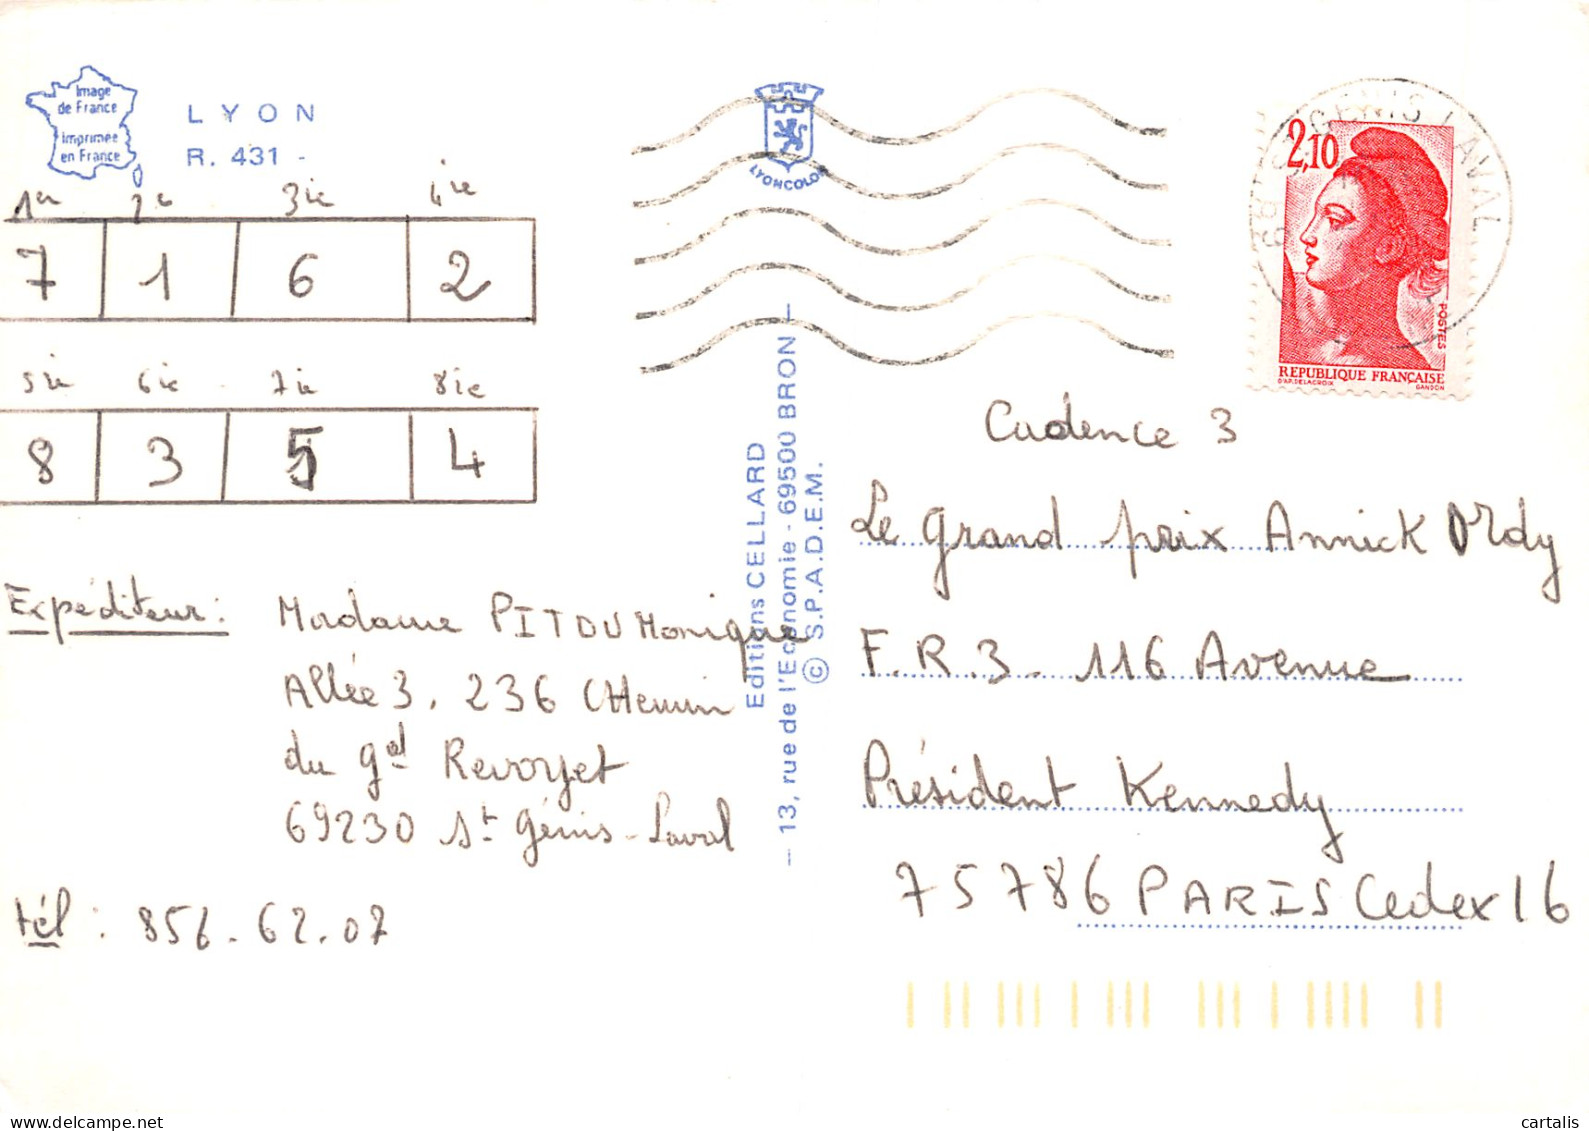 Image
de France
imprimée
en France
LYON
R. 431 -
1er 2e 3ie 4ie
7 1 6 2
5ie 6ie 7ie 8ie
8 3 5 4
Expéditeur : Madame PITOU Monique
Allée 3, 236 CHemin
du gal Revoyet
69230 St Génis-Laval
tél : 856.62.07
LYONCOLOR
Editions CELLARD
- 13, rue de l'Economie - 69500 BRON -
© S.P.A.D.E.M.
GENIS LAVAL
69
2,10
POSTES
REPUBLIQUE FRANÇAISE
D'AP. DELACROIX GANDON
Cadence 3
Le grand prix Annick Ordy
F.R.3. 116 Avenue
Président Kennedy
75786 PARIS Cedex 16
cartalis.com